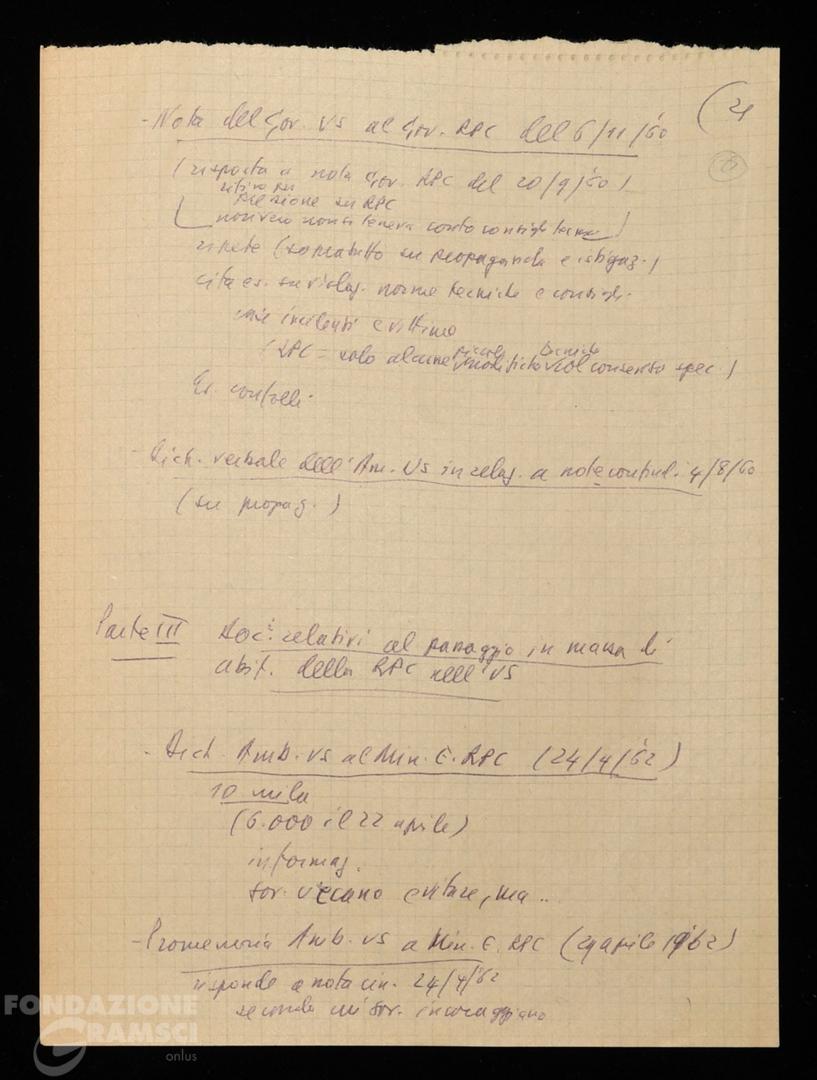 (21
- Nota del Gov. US al Gov. RPC del 6/11/'60
(6)
(risposta a nota Gov. RPC del 20/9/'60)
ritiro su
pressione su RPC
non vero non si teneva conto consigli
ripete (soprattutto su propaganda e istigaz.)
cita es. su violaz. norme tecniche e consigli.
incidenti e vittime
(RPC = solo alcune piccole modifiche tecniche col consenso spec.)
Es. controlli
- Dich. verbale dell'Am. US in relaz. a note 4/8/60
(su propag.)
Parte III Doc. relativi al passaggio in massa di
abit. della RPC nell'US
- Dich. Amb. US al Min. E. RPC (24/4/'62)
10 mila
(6.000 il 22 aprile)
informaz.
evitare, ma ..
- Promemoria Amb. US a Min. E. RPC (29 aprile 1962)
risponde a nota cin. 24/4/'62
secondo cui sov. incoraggiano
FONDAZIONE
GRAMSCI
onlus